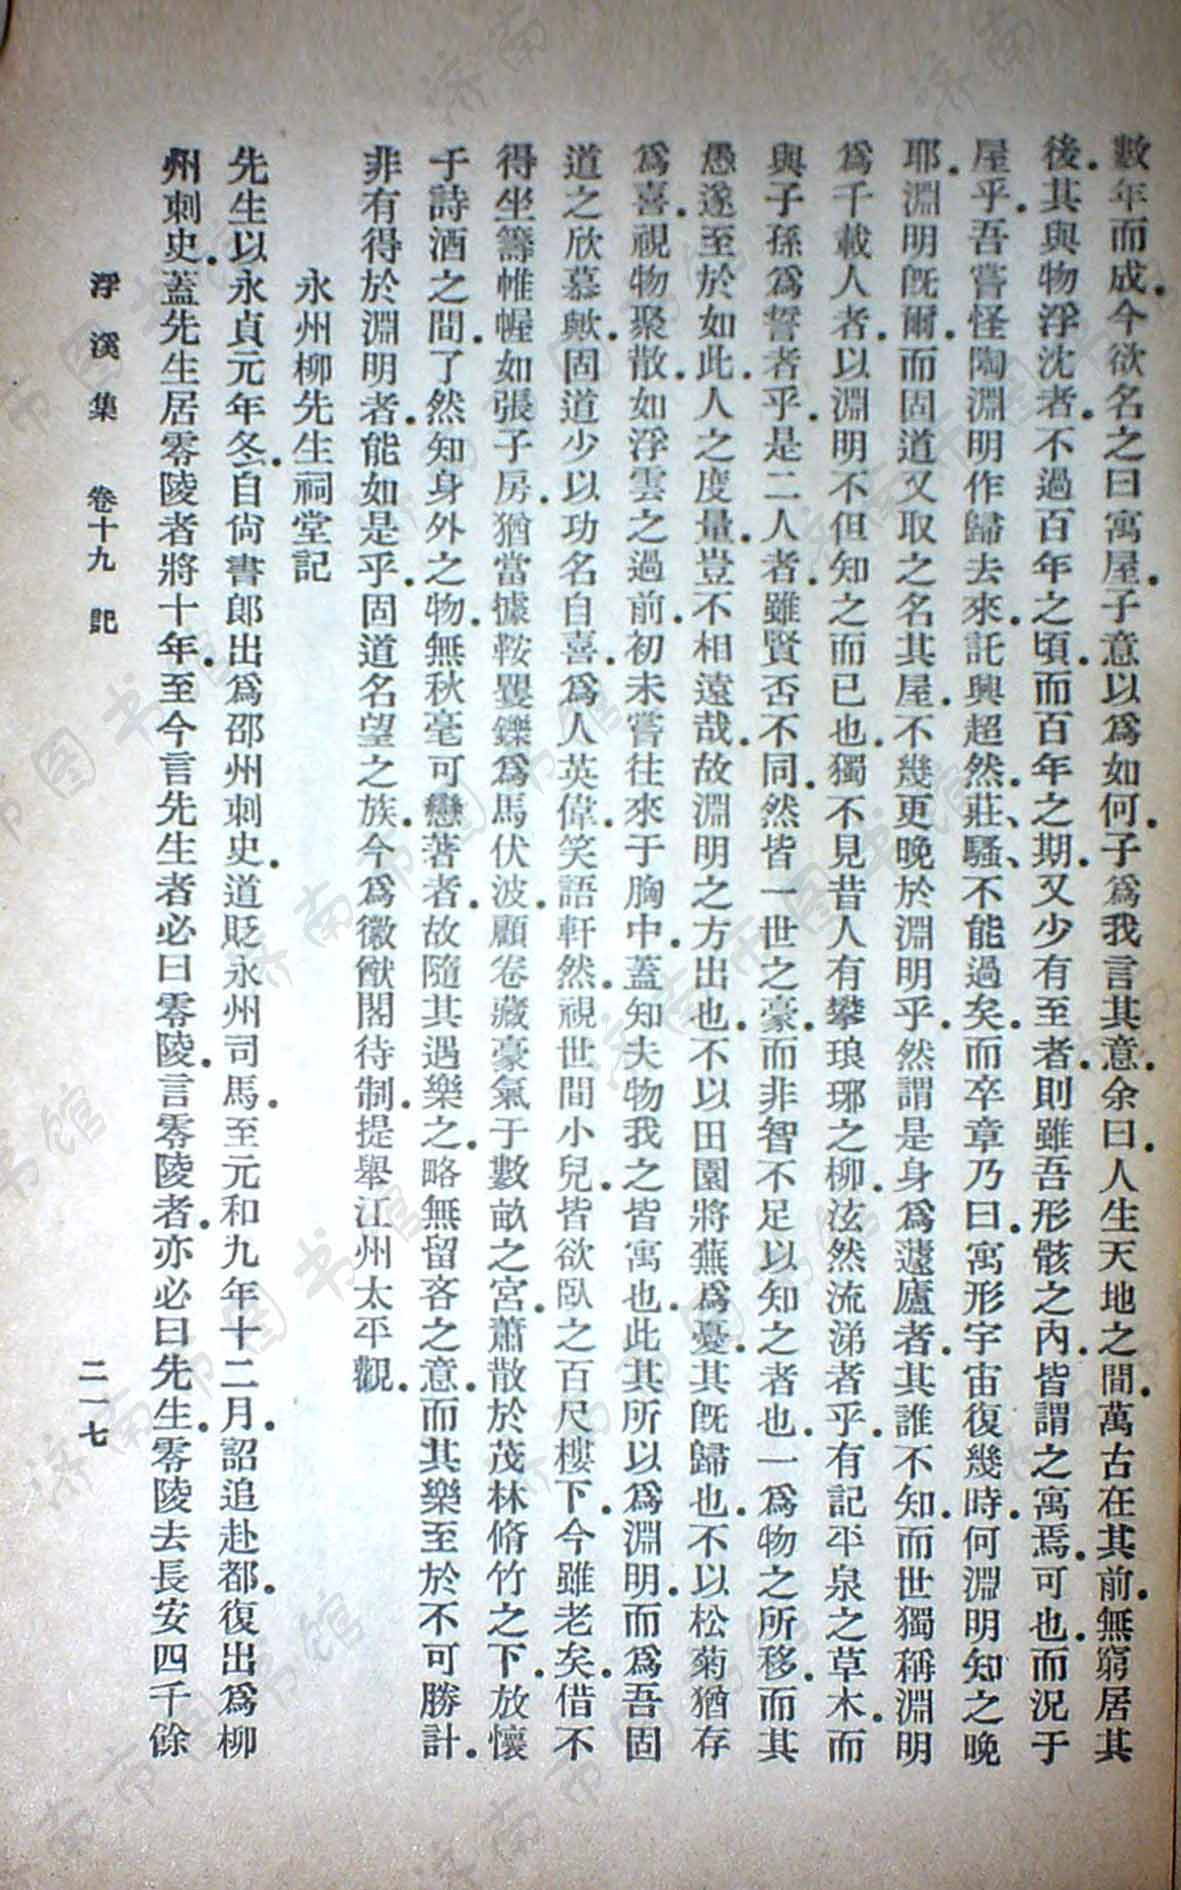 數年而成.今欲名之曰寓屋.子意以爲如何.子爲我言其意.余曰.人生天地之間.萬古在其前.無窮居其
後.其與物浮沈者.不過百年之頃.而百年之期.又少有至者.則雖吾形骸之內.皆謂之寓焉.可也.而況于
屋乎.吾嘗怪陶淵明作歸去來.託興超然.莊、騷、不能過矣.而卒章乃曰.寓形宇宙復幾時.何淵明知之晚
耶.淵明旣爾.而固道又取之名其屋.不幾更晚於淵明乎.然謂是身爲蘧廬者.其誰不知.而世獨稱淵明
爲千載人者.以淵明不但知之而已也.獨不見昔人有攀琅琊之柳.泫然流涕者乎.有記平泉之草木.而
與子孫爲誓者乎.是二人者.雖賢否不同.然皆一世之豪.而非智不足以知之者也.一爲物之所移.而其
愚遂至於如此.人之度量.豈不相遠哉.故淵明之方出也.不以田園將蕪爲憂.其旣歸也.不以松菊猶存
爲喜.視物聚散.如浮雲之過前.初未嘗往來于胸中.蓋知夫物我之皆寓也.此其所以爲淵明.而爲吾固
道之欣慕歟.固道少以功名自喜.爲人英偉.笑語軒然.視世間小兒.皆欲臥之百尺樓下.今雖老矣.借不
得坐籌帷幄如張子房.猶當據鞍矍鑠爲馬伏波.顧卷藏豪氣于數畝之宮.蕭散於茂林脩竹之下.放懷
于詩酒之間.了然知身外之物.無秋毫可戀著者.故隨其遇樂之.略無留吝之意.而其樂至於不可勝計.
非有得於淵明者.能如是乎.固道名望之族.今爲徽猷閣待制.提舉江州太平觀.
永州柳先生祠堂記
先生以永貞元年冬.自尙書郎出爲邵州刺史.道貶永州司馬.至元和九年十二月.詔追赴都.復出爲柳
州刺史.蓋先生居零陵者將十年.至今言先生者必曰零陵.言零陵者.亦必曰先生.零陵去長安四千餘
浮溪集 卷十九 記
二一七
济南市图书馆